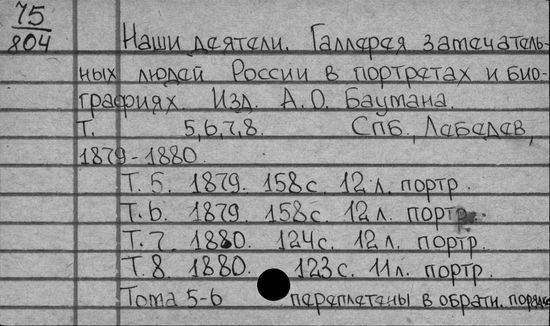 75
804
Наши деятели. Галлерея замечатель-
ных людей России в портретах и био-
графиях. Изд. А.О. Баумана.
Т. 5,6,7,8. СПБ., Лебедев,
1879-1880.
Т. 5. 1879. 158 с. 12 л. портр.
Т. 6. 1879. 158 с. 12 л. портр.
Т. 7. 1880. 124 с. 12 л. портр.
Т. 8. 1880. 123 с. 11 л. портр.
Тома 5-6 переплетены в обратн. порядке